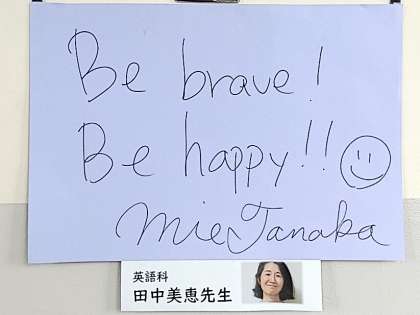 Be brave!
Be happy!!
Mie Tanaka
英語科
田中美恵先生